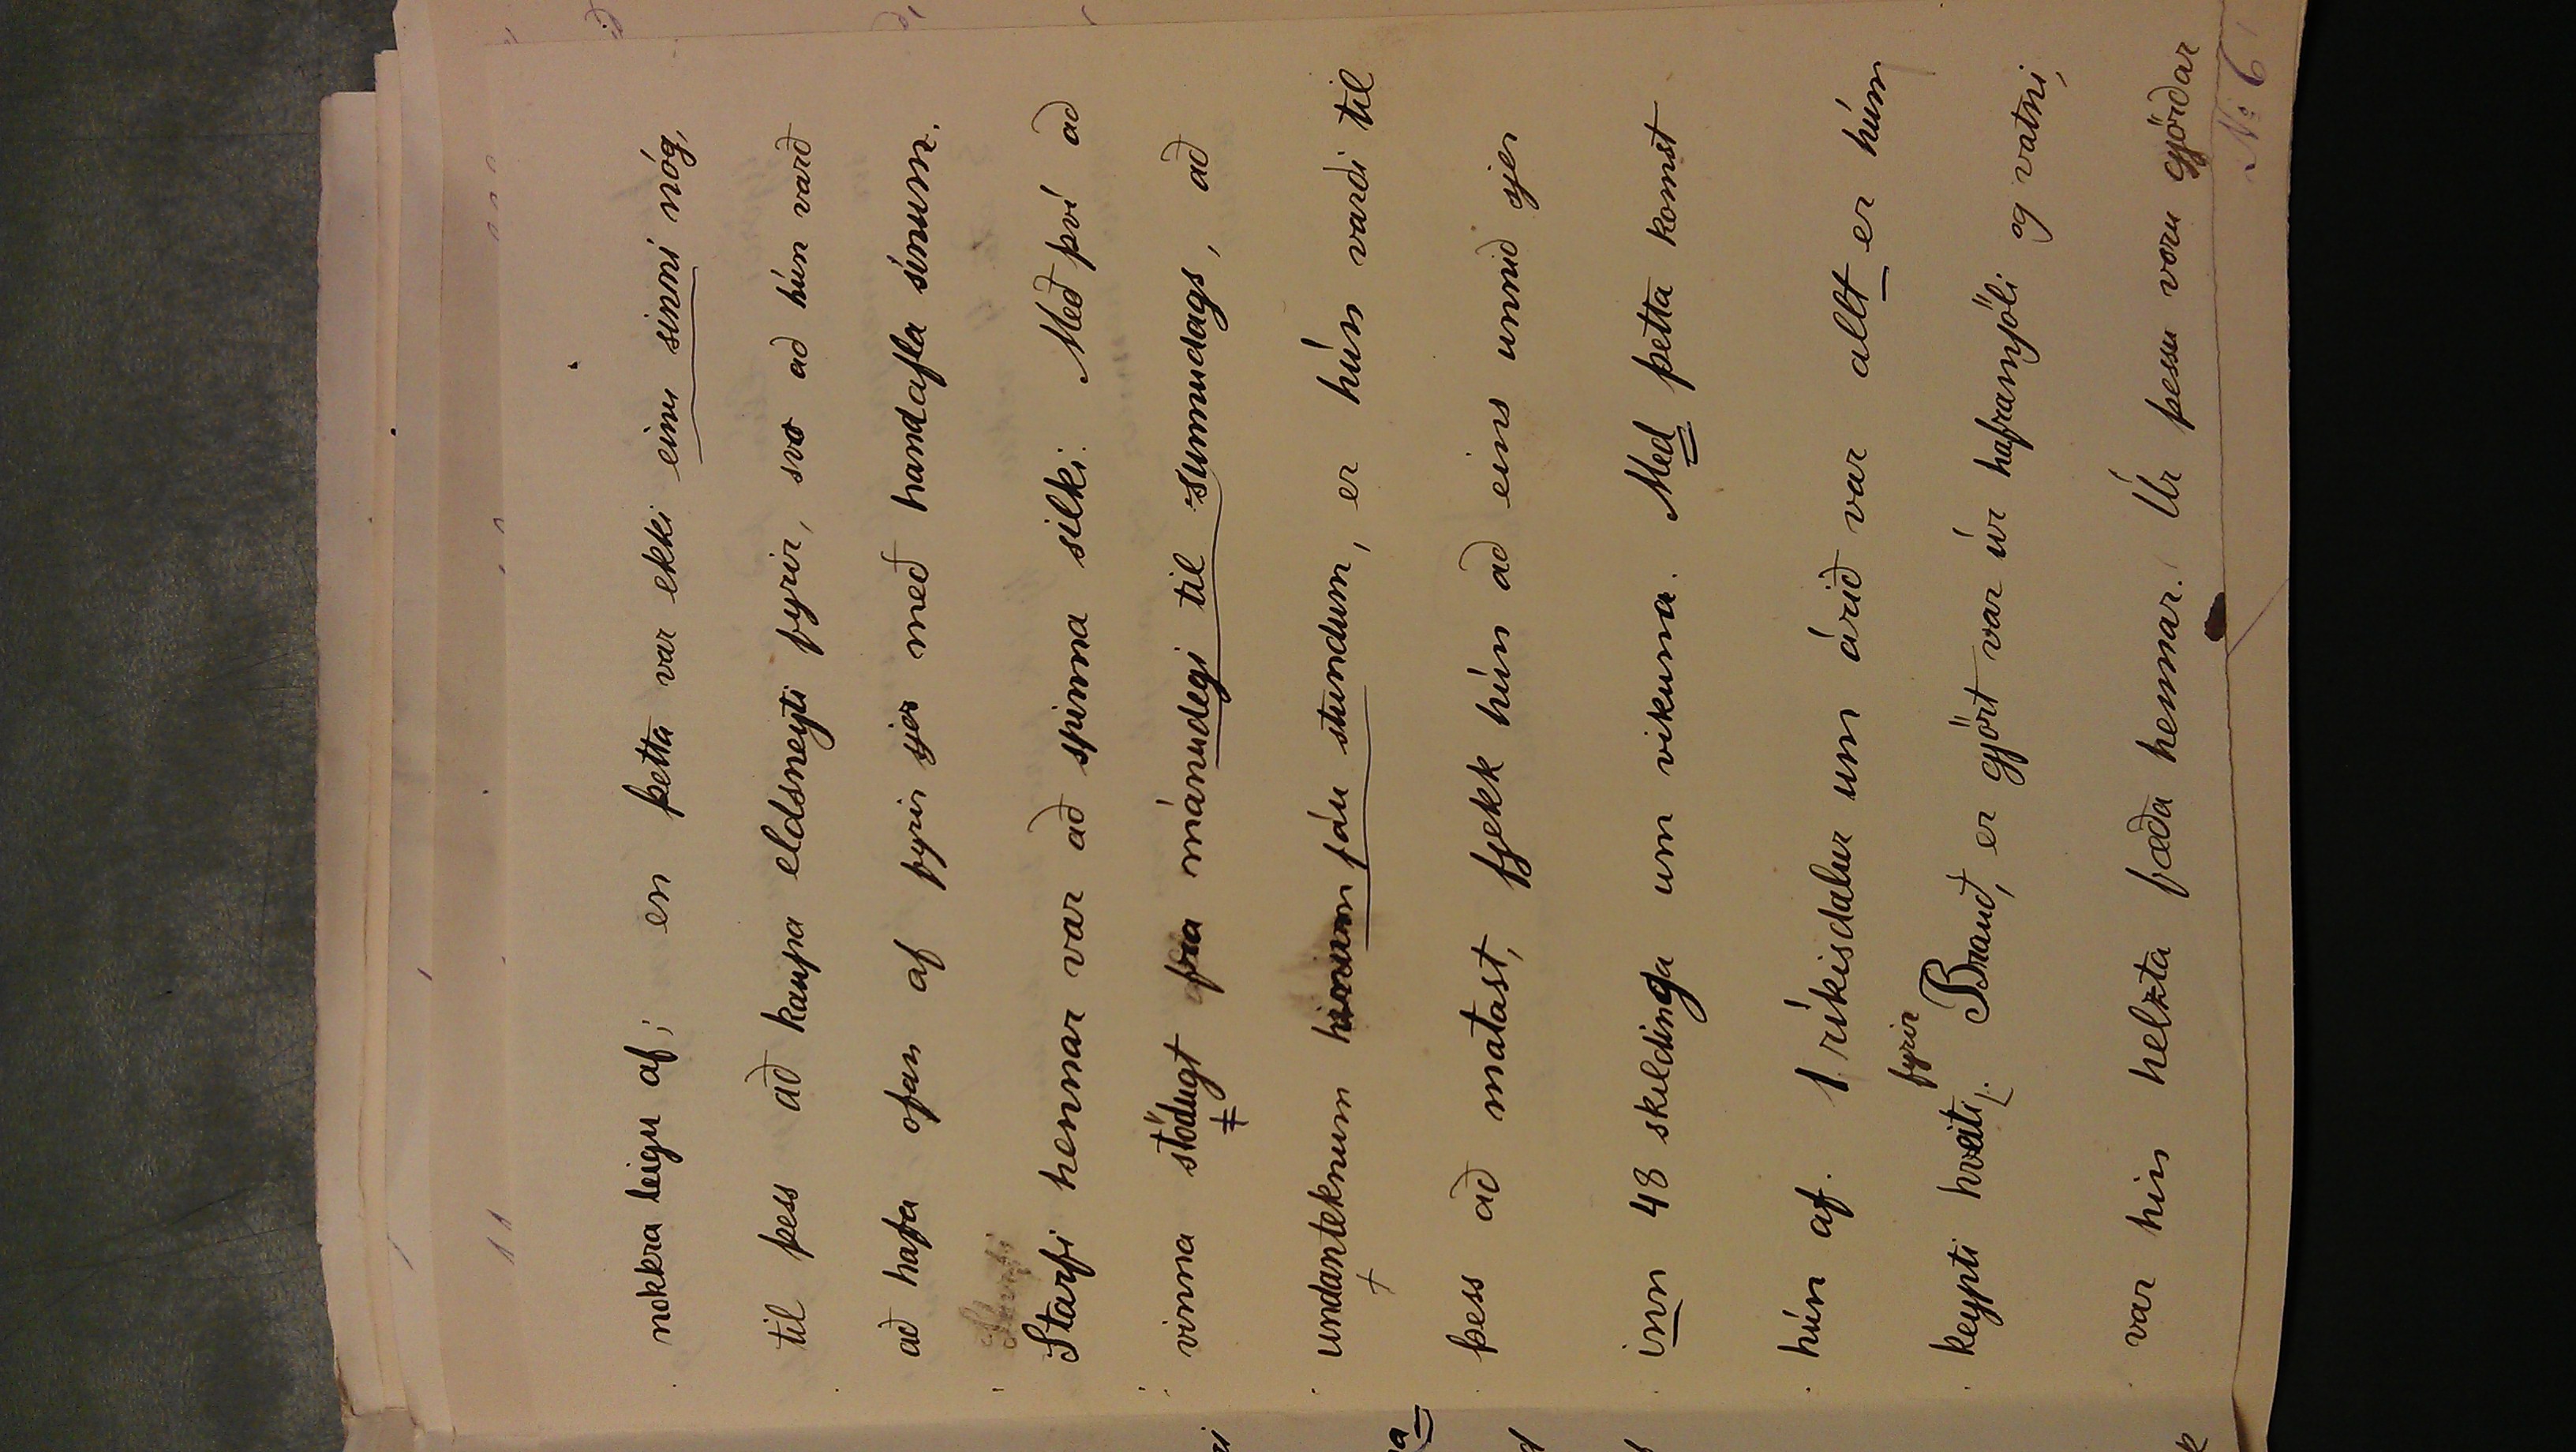 nokkra leigu af; en þetta var ekki einu sinni nóg,
til þess að kaupa eldsneyti fyrir, svo að hún varð
að hafa ofan af fyrir sjer með handafla sínum.
Starfi
Starfi hennar var að spinna silki. Með því að
vinna stöðugt frá mánudegi til sunnudags, að
undanteknum hinum fáu stundum, er hún varði til
þess að matast, fjekk hún að eins unnið sjer
inn 48 skildinga um vikuna. Með þetta komst
hún af. 1 ríkisdalur um árið var allt er hún
keypti hveiti fyrir. Brauð, er gjört var úr haframjöli og vatni,
var hin helzta fæða hennar. Úr þessu voru gjörðar
№ 6